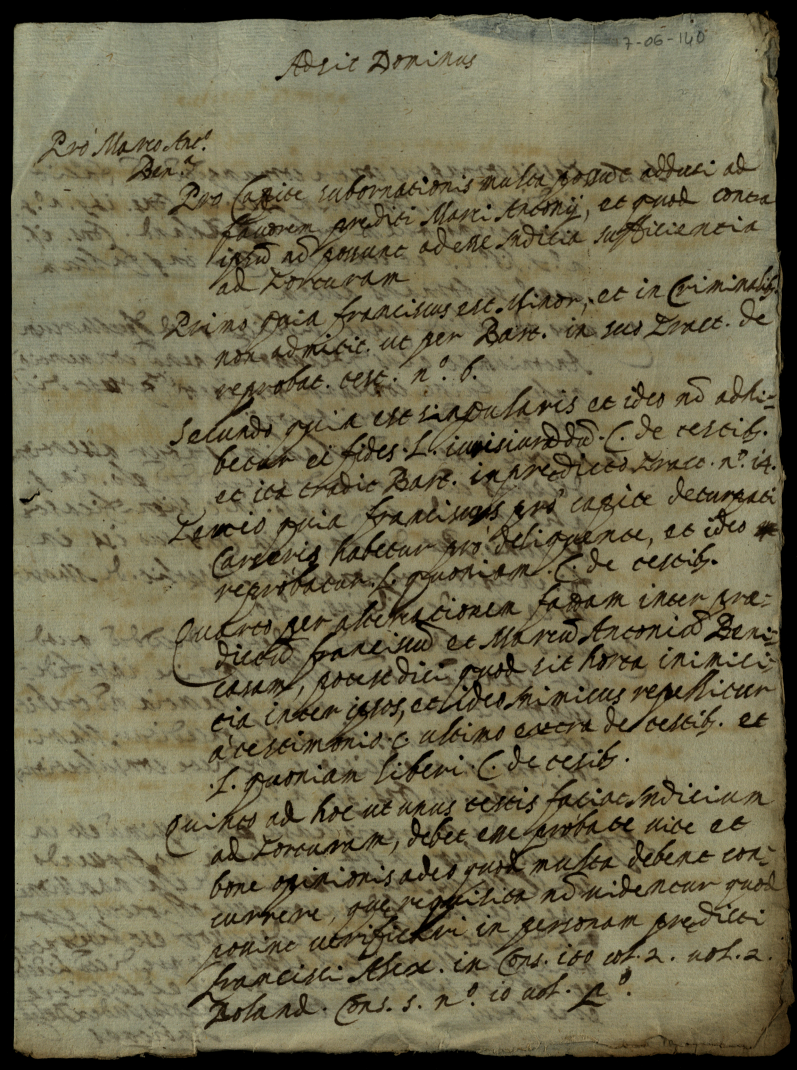 17-06-140
Adsit Dominus
Pro Marco Ant.º
Ben.ª
Pro Capite subornationis multa possūt adduci ad
favorem prędicti Marci Antonij, et quod contra
ipsū nō possunt adesse Indicia sufficientia
ad Torturam
Primo quia franciscus est Minor, et in Criminalib.
non admitit. ut per Bart. in suo Tract. de
reprobat. test. nº. 6.
Secundo quia est singularis et ideo nō adhi-
betur ei fides. L. iurisiurādū. C. de testib.
et ita tradit Bart. in predicto Tract. nº. 14.
Tertio quia franciscus pro capite deturpati
Carceris habetur pro delinquente, et ideo
reprobatur. L. quoniam. C. de testib.
Quarto per altercationem factam inter præ-
dictū franciscū et Marcū Antoniū Beni-
casam, potest dici quod sit horta inimici-
tia inter ipsos, et ideo inimicus repellitur
a testimonio. c. ultimo extra de testib. et
.L. quoniam liberi. C. de testib.
Quinto ad hoc ut unus testis faciat Indicium
ad Torturam, debet esse probate vite et
bone opinionis adeo quod multa debent con-
currere, que requisita nō videntur quod
possint verificari in personam prędicti
francisci Alex. in Cons. 160 col. 2. vol. 2.
Roland. Cons. 5. nº. 10 vol. pº.